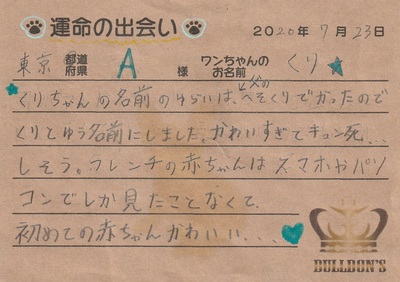 運命の出会い
2020年7月23日
東京 都道府県 A 様 ワンちゃんのお名前 くり
くりちゃんの名前のゆらいは、父のへそくりでかったので
くりとゆう名前にしました。かわいすぎてキュン死...
しそう。フレンチの赤ちゃんはスマホやパソ
コンでしか見たことなくて
初めての赤ちゃんかわいい....
BULLBON'S